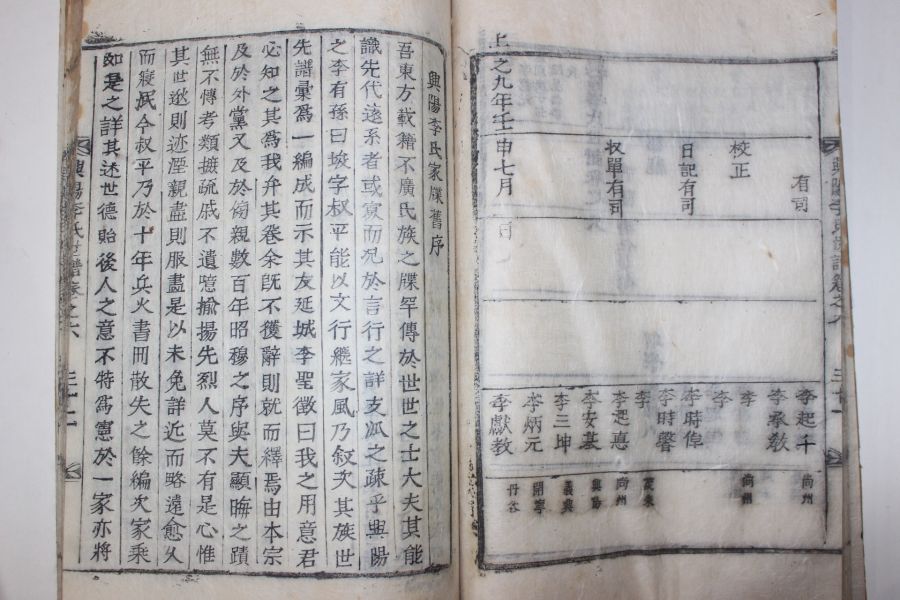 上之九年壬申七月 日
有司
校正
日記有司
収單有司
李起千 尚州
李承敎
李 尚州
李
李時偉
李時馨
李
李起惠 尚州
李安基 興陽
李三坤 義興
李炳元 開寧
李獻教 丹谷
興陽李氏世譜卷之六
興陽李氏家牒舊序
吾東方載籍不廣氏族之牒罕傳於世世之士大夫其能
識先代遠系者或寡而况於言行之詳支泒之疎乎興陽
之李有孫曰埈字叔平能以文行繼家風乃敍次其族世
先譜彙爲一編成而示其友延城李聖徵曰我之用意君
必知之其爲我弁其卷余旣不獲辭則就而繹焉由本宗
及於外黨又及於傍親數百年昭穆之序與夫顯晦之蹟
無不傳考類摭疏戚不遺噫揄揚先烈人莫不有是心惟
其世逖則迹湮親盡則服盡是以未免詳近而略遠愈久
而寢泯今叔平乃於十年兵火書冊散失之餘編次家乘
如是之詳其述世德貽後人之意不特爲憲於一家亦將
興陽李氏世譜卷之六